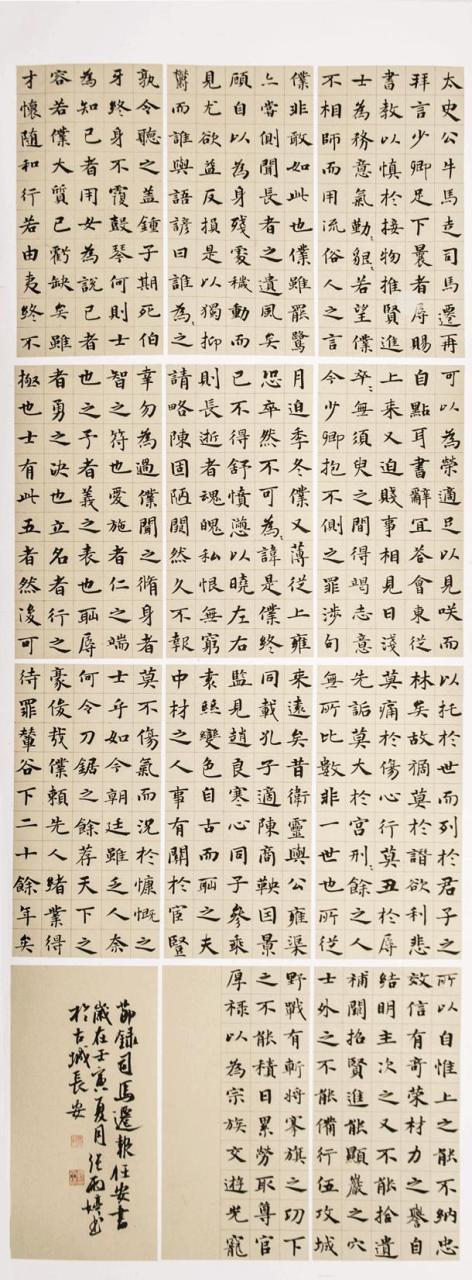 太史公牛馬走司馬遷再
拜言少卿足下曩者辱賜
書教以慎於接物推賢進
士為務意氣勤〻懇〻若望僕
不相師而用流俗人之言
僕非敢如此也僕雖罷駑
亦嘗側聞長者之遺風矣
顧自以為身殘處穢動而
見尤欲益反損是以獨抑
鬱而誰與語諺曰誰為〻之
孰令聽之蓋鍾子期死伯
牙終身不復鼓琴何則士
為知己者用女為說己者
容若僕大質已虧缺矣雖
才懷隨和行若由夷終不
可以為榮適足以見咲而
自點耳書辭宜答會東從
上來又迫賤事相見日淺
卒〻無須臾之間得竭志意
今少卿抱不側之罪涉旬
月迫季冬僕又薄從上雍
恐卒然不可為〻諱是僕終
已不得舒憤懣以曉左右
則長逝者魂魄私恨無窮
請略陳固陋闕然久不報
幸勿為過僕聞之脩身者
智之符也愛施者仁之端
也之予者義之表也恥辱
者勇之決也立名者行之
極也士有此五者然後可
以托於世而列於君子之
林矣故禍莫於憯欲利悲
莫痛於傷心行莫丑於辱
先詬莫大於宮刑〻餘之人
無所比數非一世也所從
來遠矣昔衛靈與公雍渠
同載孔子適陳商鞅因景
監見趙良寒心同子參乘
袁絲變色自古而恥之夫
中材之人事有關於宦豎
莫不傷氣而況於慷慨之
士乎如今朝廷雖乏人奈
何令刀鋸之餘荐天下之
豪俊哉僕賴先人緒業得
待罪輦谷下二十餘年矣
所以自惟上之能不納忠
效信有奇榮材力之譽自
結明主次之又不能拾遺
補闕招賢進能顯巖之穴
士外之不能備行伍攻城
野戰有斬將搴旗之功下
之不能積日累勞取尊官
厚祿以為宗族交遊光寵
節錄司馬遷報任安書
歲在壬寅夏月張雨婷書
於古城長安